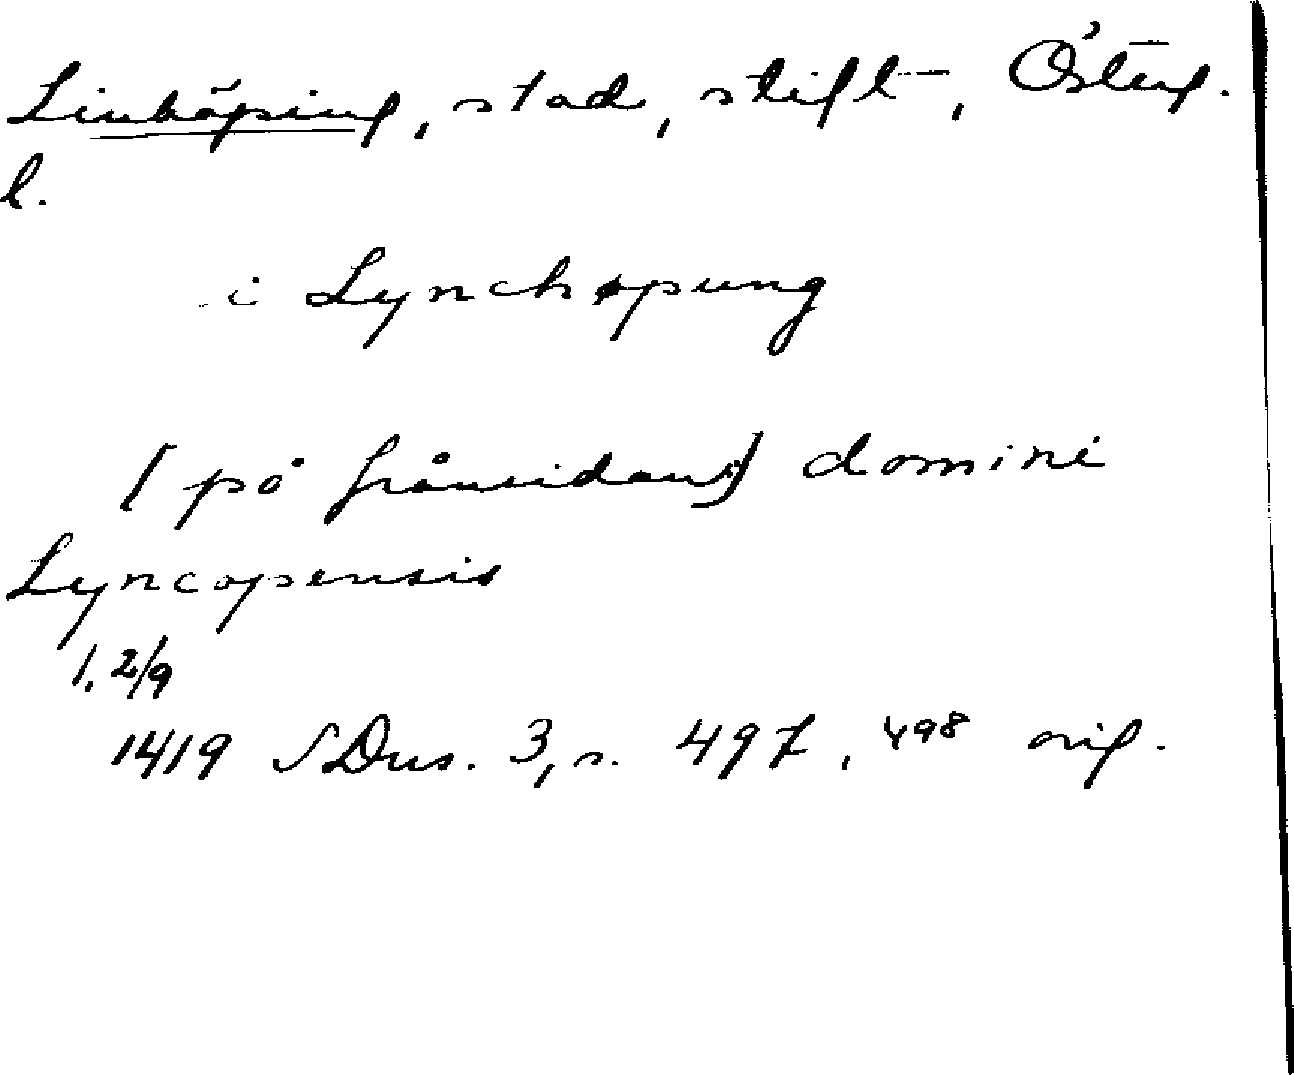 Linköping, stad, stift, Österg.
l.
i Lynchøpung
(på frånsidan) domini
Lyncopensis
1. 2/9
1419 SDns. 3, s. 497, 498 orig.